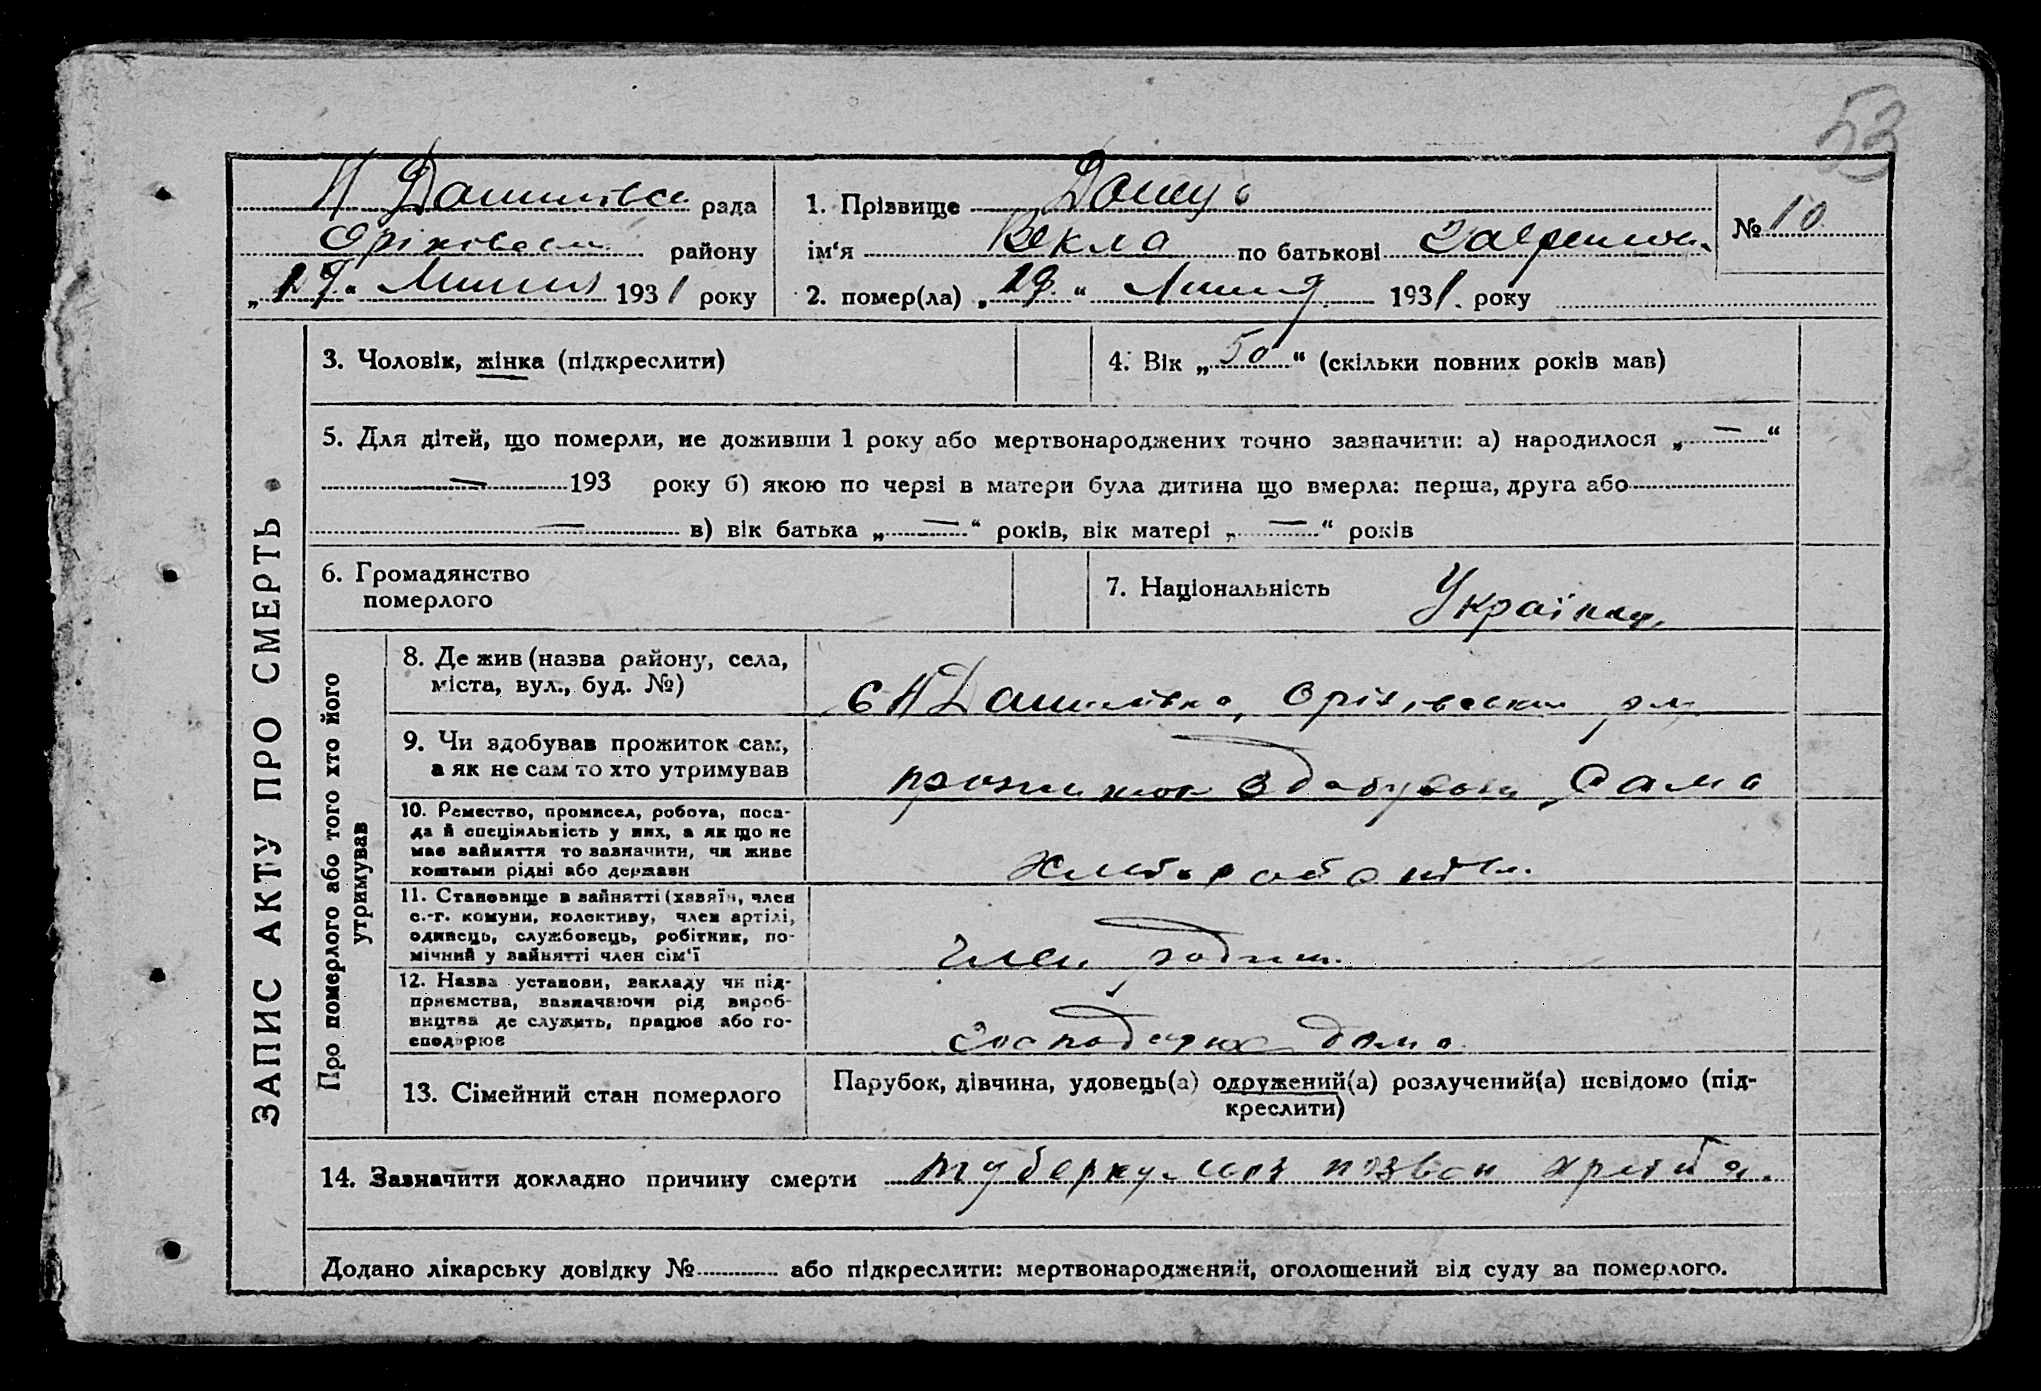 53
Н Данилівсь рада
Оріхівськ району
„29“ Липня 1931 року
1. Прізвище
ім‘я Векла по батькові
2. помер(ла) „29“ Липня 1931. року
№ 10
3. Чоловік, жінка (підкреслити)
4. Вік „50“ (скільки повних років мав)
5. Для дітей, що померли, не доживши 1 року або мертвонароджених точно зазначити: а) народилося „—“
— 193 року б) якою по черзі в матери була дитина що вмерла: перша, друга або
— в) вік батька „—“ років, вік матері „—“ років
6. Громадянство
померлого
7. Національність Українка
ЗАПИС АКТУ ПРО СМЕРТЬ
Про померлого або того хто його
утримував
8. Де жив (назва району, села,
міста, вул., буд. №)
с Н Данилівка, Оріхівськ р-н
9. Чи здобував прожиток сам,
а як не сам то хто утримував
прожиток здобувала сама
10. Ремество, промисел, робота, поса-
да й спеціяльність у них, а як що не
має заняття то зазначити, чи живе
коштами рідні або держави
хліборобств.
11. Становище в зайнятті (хазяїн, член
с.-г. комуни, колективу, член артілі,
одинець, службовець, робітник, по-
мічний у зайнятті член сім‘ї
член родин.
12. Назва установи, закладу чи під-
приємства, зазначаючи рід вироб-
ництва де служить, працює або го-
сподарює
господарює дома
13. Сімейний стан померлого
Парубок, дівчина, удовець(а) одружений(а) розлучений(а) невідомо (під-
креслити)
14. Зазначити докладно причину смерти туберкульоз позвон хребта.
Додано лікарську довідку № або підкреслити: мертвонароджений, оголошений від суду за померлого.